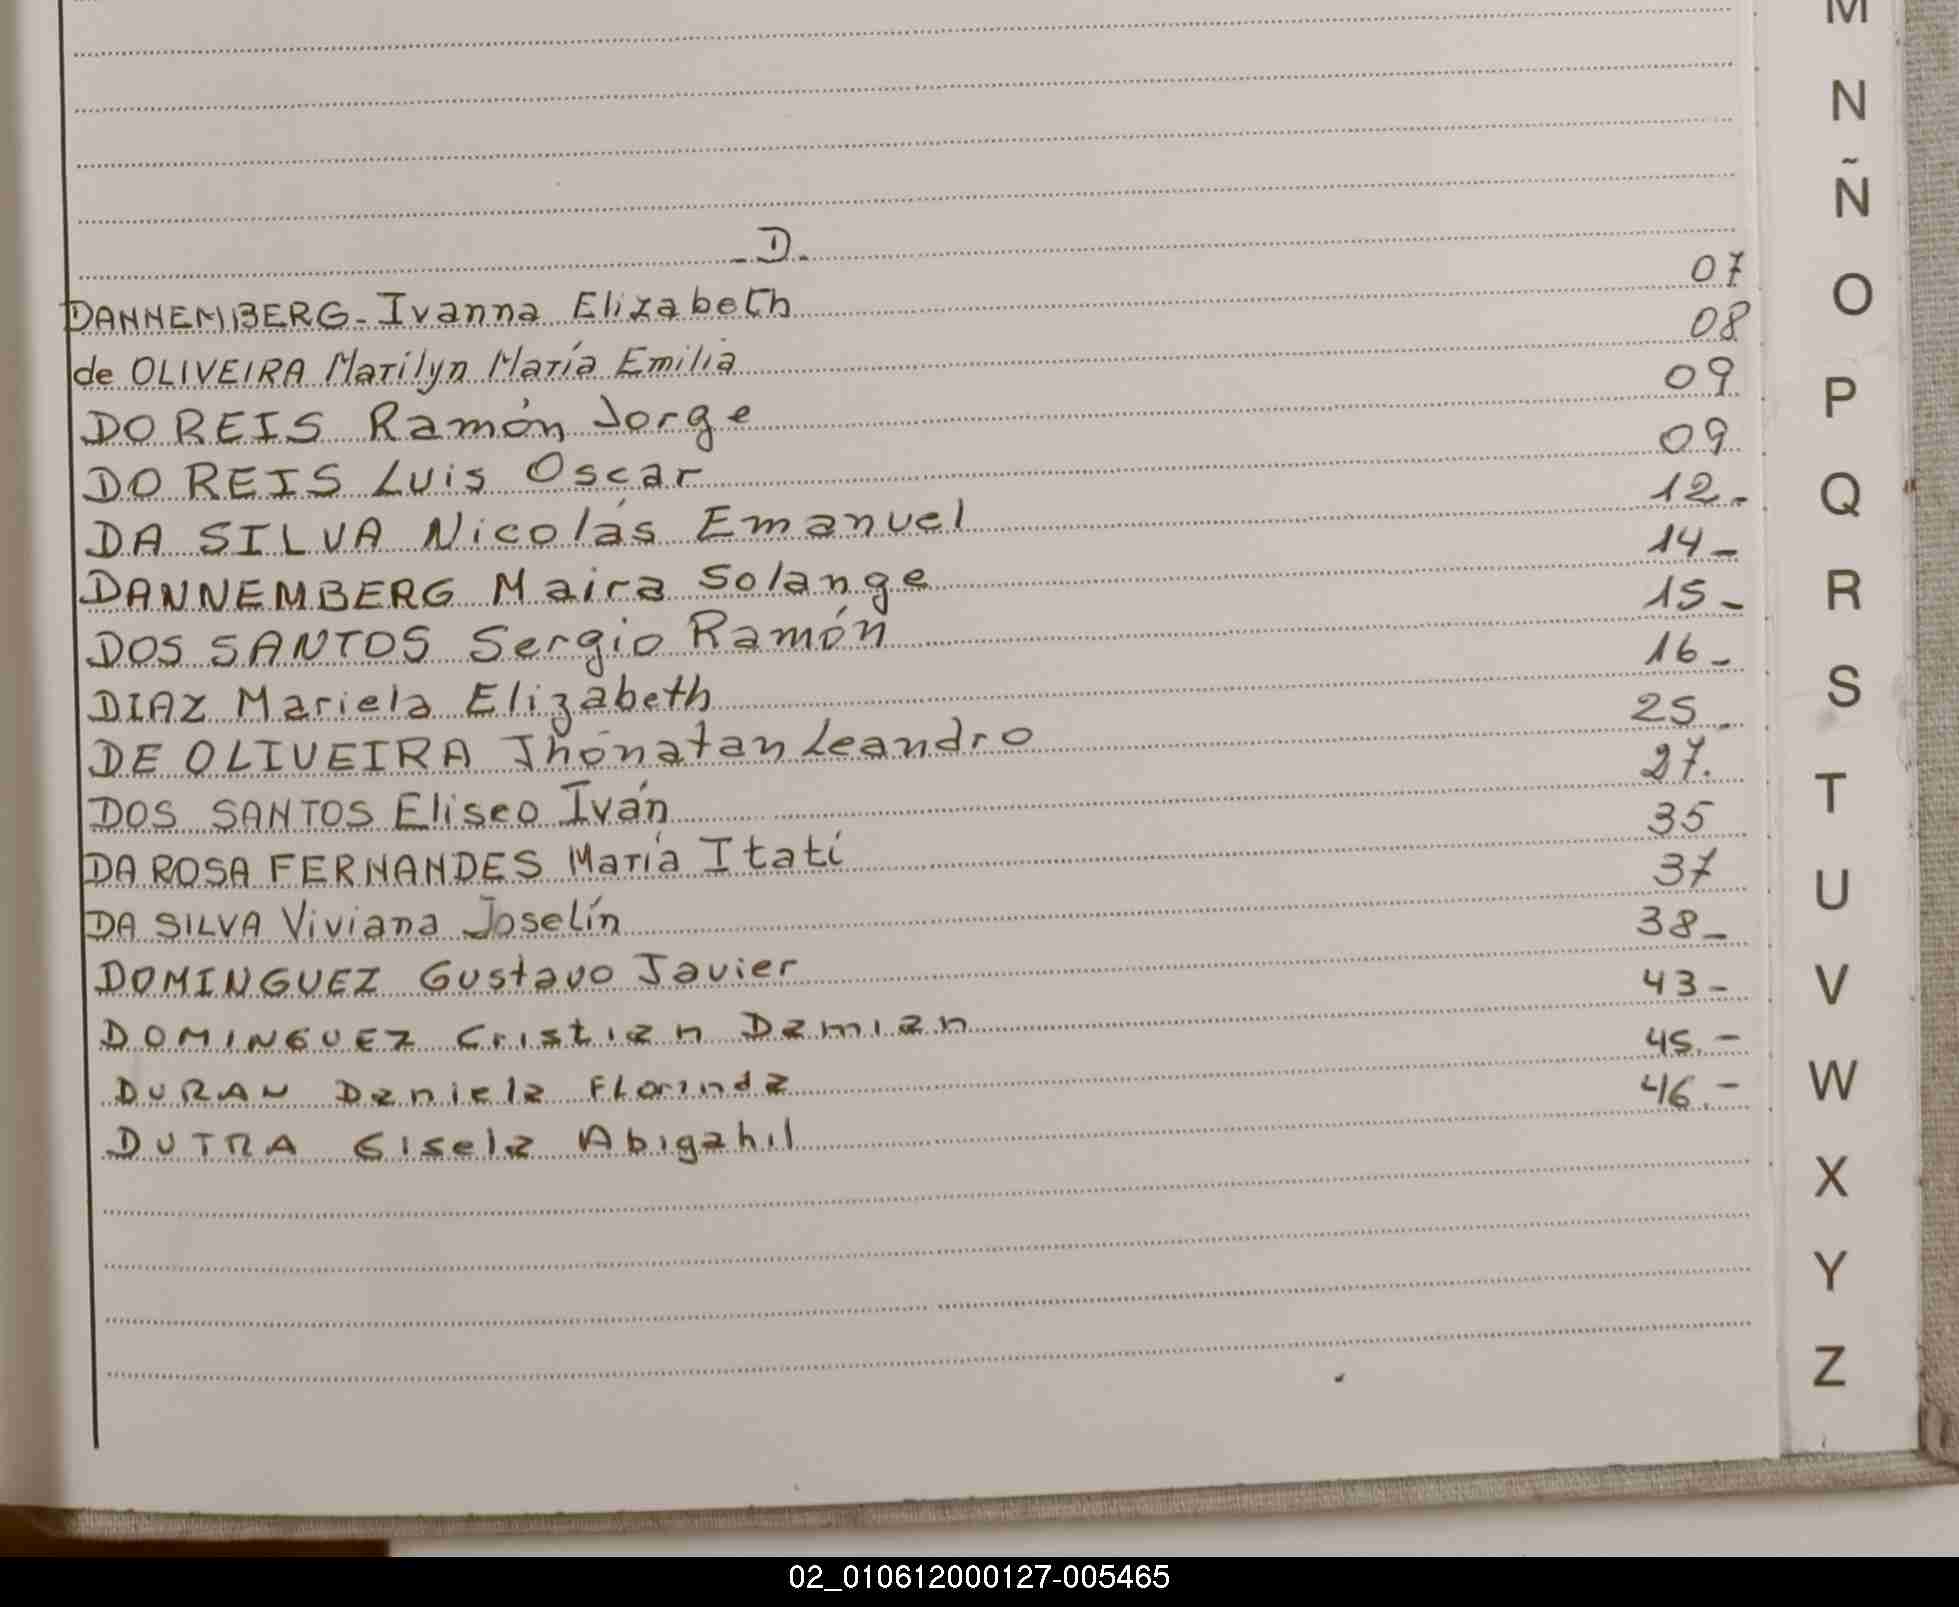 -D-
DANNEMBERG-Ivanna Elizabeth 07
de OLIVEIRA Marilyn María Emilia 08
DO REIS Ramón Jorge 09
DO REIS Luis Oscar 09
DA SILVA Nicolás Emanuel 12-
DANNEMBERG Maira Solange 14-
DOS SANTOS Sergio Ramón 15-
DIAZ Mariela Elizabeth 16-
DE OLIVEIRA Jhonatan Leandro 25-
DOS SANTOS Eliseo Iván 27.
DA ROSA FERNANDES María Itatí 35
DA SILVA Viviana Joselín 37
DOMINGUEZ Gustavo Javier 38-
DOMINGUEZ Cristian Damian 43-
DURAN Daniela Florinda 45.-
DUTRA Gisela Abigahil 46.-
M
N
Ñ
O
P
Q
R
S
T
U
V
W
X
Y
Z
02_010612000127-005465